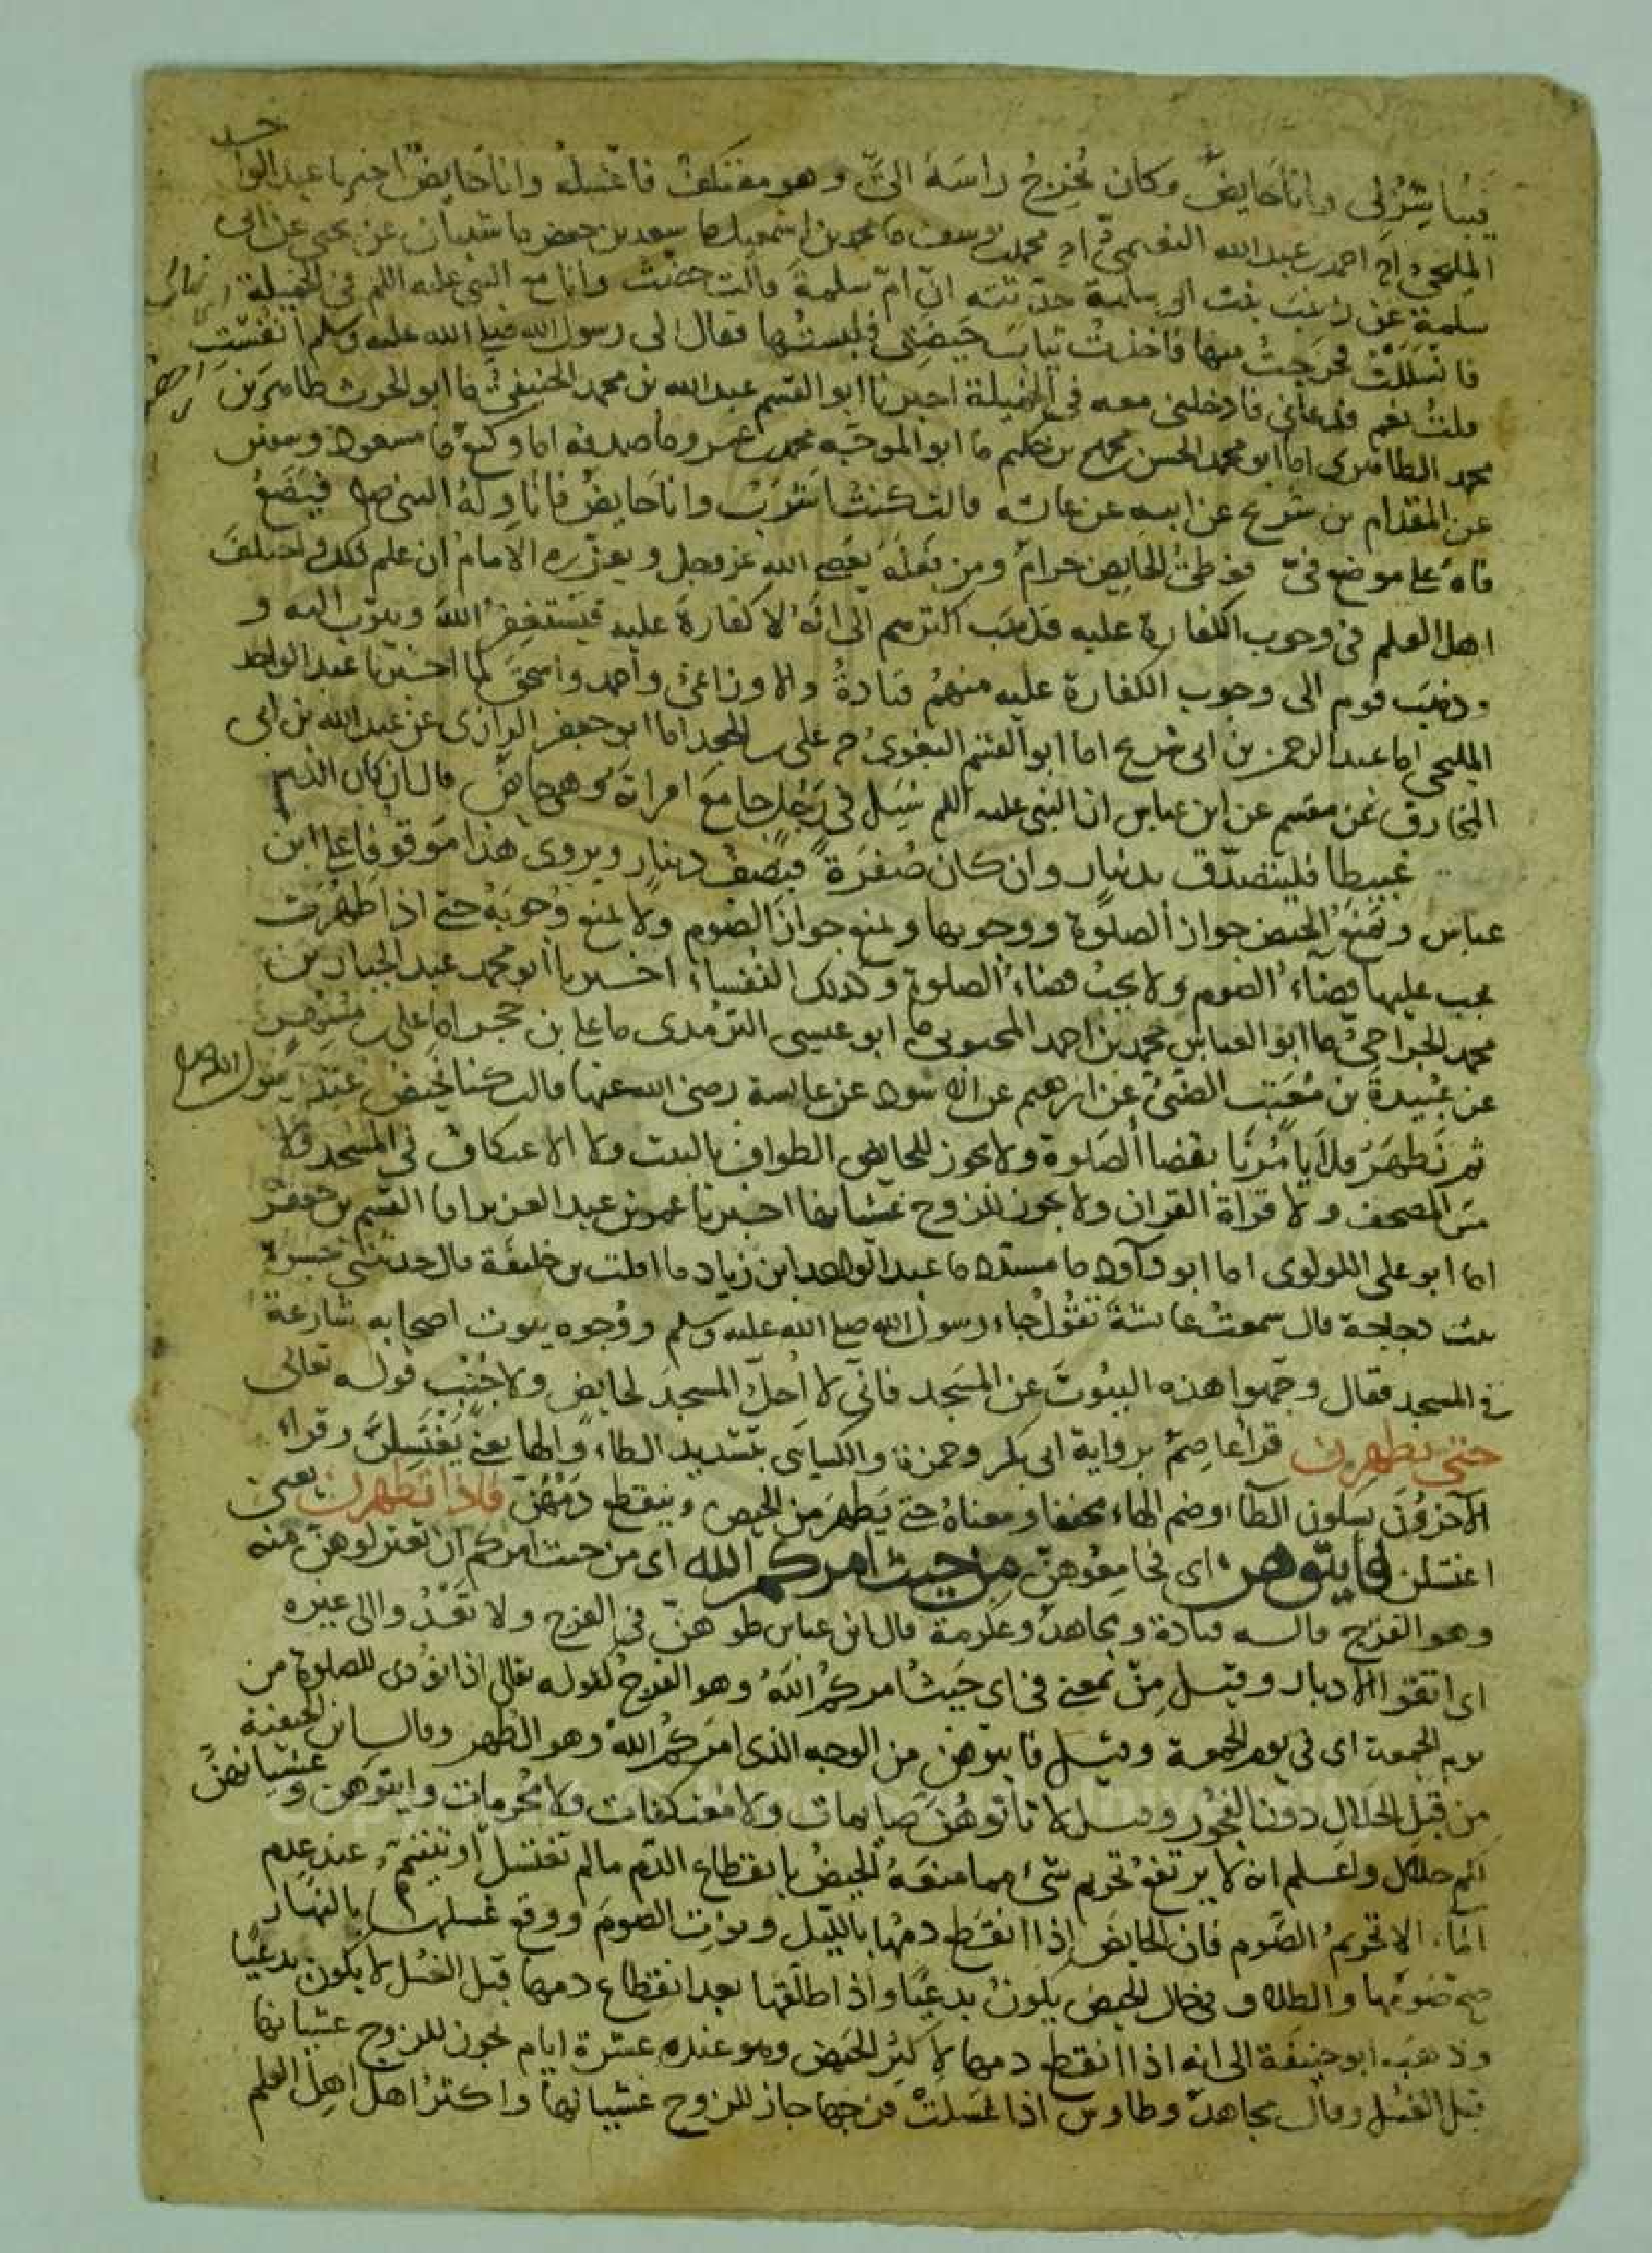 فيباشرني وانا حايض وكان يخرج راسه اليّ وهو معتكف فاغسله وانا حايض اخبرنا عبد الواحد
المليحي انا احمد بن عبد الله النعيمي انا محمد بن يوسف ما محمد بن اسمعيل ما سعد بن حفص ما شيبان عن يحيى عن ابي
سلمة عن زينب بنت ابي سلمة حدثته ان ام سلمة قالت حضت وانا مع النبي عليه اللم في الخميلة
فانسللت فخرجت منها فاخذت ثياب حيضتي فلبستها فقال لي رسول الله صلى الله عليه وسلم انفست
قلت نعم فدعاني فادخلني معه في الخميلة اخبرنا ابو القسم عبد الله بن محمد الحنيفي ما ابو الحرث طاهر بن
محمد الطاهري اما ابو محمد الحسن بن محمد بن حكيم ما ابو الموجه محمد بن عمرو ما صدقه اما وكيع ما مسعود وسفين
عن المقدام بن شريح عن ابيه عن عائشه قالت كنت اشرب وانا حايض فاناوله النبي صلم فيضع
فاه على موضع فيّ فوطئ الحايض حرام ومن فعله يعصي الله عز وجل ويعزره الامام ان علم ذلك واختلف
اهل العلم في وجوب الكفارة عليه فذهب اكثرهم الى انه لا كفارة عليه فيستغفر الله ويتوب اليه و
وذهب قوم الى وجوب الكفارة عليه منهم قتادة والاوزاعي واحمد واسحق لما اخبرنا عبد الواحد
المليحي اما عبد الرحمن بن ابي شريح اما ابو القسم البغوي علي بن الجعد اما ابو جعفر الرازي عن عبد الله بن ابي
المخارق عن مقسم عن ابن عباس ان النبي عليه اللم سيل في رجل جامع امراة وهي حائض قال ان كان الدم
غبيطا فليتصدق بدينار وان كان صفرة فبنصف دينار ويروى هذا موقوفا على ابن
عباس ويمنع الحيض جواز الصلوة ووجوبها ويمنع جواز الصوم ولا يمنع وجوبه حتى اذا طهرت
يجب عليها قضاء الصوم ولا يجب قضاء الصلوة وكذلك النفساء اخبرنا ابو محمد عبد الجبار بن
محمد الجراحي ما ابو العباس محمد بن احمد المحبوبي ما ابو عيسى الترمذي ما علي بن حجر اما علي بن مسهر
عن عبيدة بن معتب الضبي عن ابرهيم عن الاسود عن عائشة رضي الله عنها قالت كنا نحيض عند رسول الله صلم
ثم نطهر فلا يامرنا بقضا الصلوة ولا يجوز للحايض الطواف بالبيت ولا الاعتكاف في المسجد ولا
مس المصحف ولا قراة القران ولا يجوز للزوج غشيانها اخبرنا عمر بن عبد العزيز اما القسم بن جعفر
اما ابو علي اللولوي اما ابو داود ما مسدد ما عبد الواحد ابن زياد ما افلت بن خليفة قال حدثتني جسرة
بنت دجاجة قال سمعت عايشة تقول جاء رسول الله صلى الله عليه وسلم ووجوه بيوت اصحابه شارعة
في المسجد فقال وجهوا هذه البيوت عن المسجد فاني لا احل المسجد لحايض ولا جنب قوله تعالى
حتى يطهرن قرأ عاصم برواية ابي بكر وحمزة والكسائى بتشديد الطاء والها يعني يغتسلن وقراء
الآخرون بسكون الطاء وضم الهاء مخففا ومعناه حتى يطهرن من الحيض وينقطع دمهن فاذا تطهرن يعني
اغتسلن فاتوهن اي فجامعوهن من حيث امركم الله اي من حيث امركم ان تعتزلوهن منه
وهو الفرج قاله قتادة ومجاهد وعكرمة قال ابن عباس طوهن في الفرج ولا تعدوا الى غيره
اي اتقوا الادبار وقيل من بمعنى في اي حيث امركم الله وهو الفرج كقوله تعالى اذا نودى للصلوة من
يوم الجمعة اي في يوم الجمعة وقيل فاتوهن من الوجه الذى امركم الله وهو الطهر وقال ابن الحنفية
من قبل الحلال دون الفجور وقيل لا تاتوهن صايمات ولا معتكفات ولا محرمات وايتوهن وغشيانهن
لكم حلال واعلم انه لا يرتفع تحريم شئ مما منعه الحيض بانقطاع الدم ما لم تغتسل او تتيمم عند عدم
الماء الا تحريم الصوم فان الحايض اذا انقطع دمها بالليل ونوت الصوم ووقع غسلها بالنهار
صح صومها والطلاق في حال الحيض يكون بدعيا واذا طلقها بعد انقطاع دمها قبل الغسل لا يكون بدعيا
وذهب ابو حنيفة الى انه اذا انقطع دمها لاكثر الحيض وهو عنده عشرة ايام يجوز للزوج غشيانها
قبل الغسل وقال مجاهد وطاوس اذا غسلت فرجها جاز للزوج غشيانها واكثر اهل اهل العلم
Copyright © King Saud University